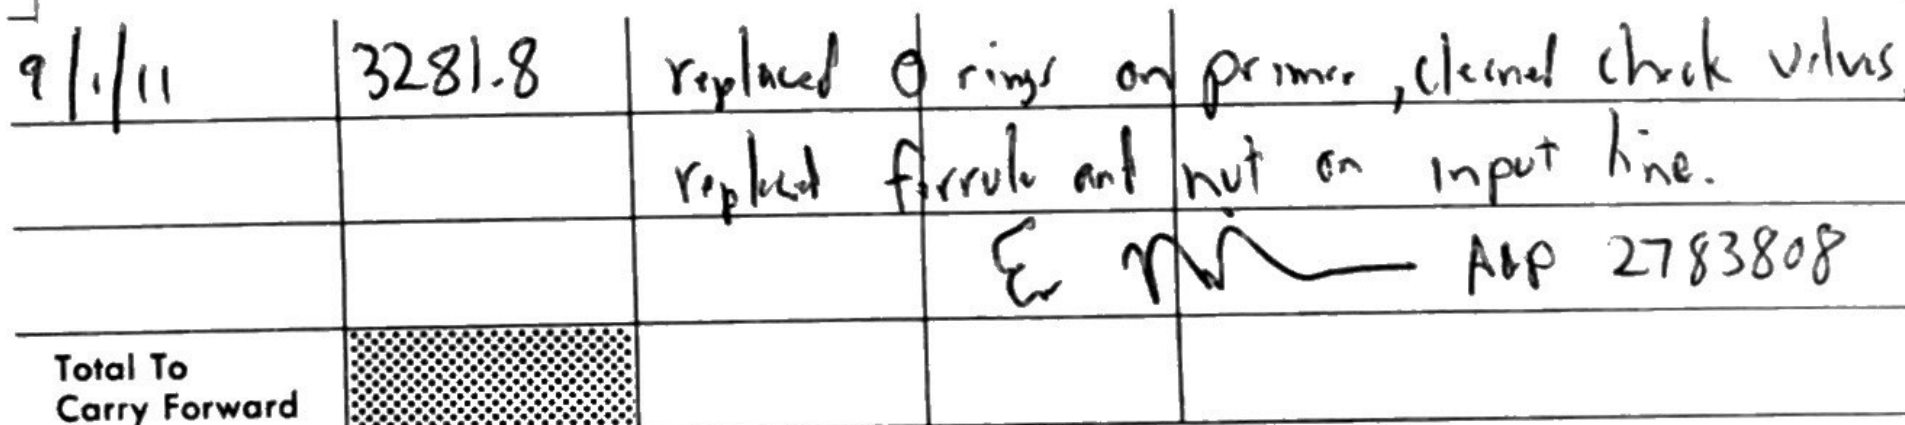 9/1/11 3281.8 replaced O rings on primer, cleaned check valves,
replaced ferrule and nut on input line.
A&P 2783808
Total To
Carry Forward